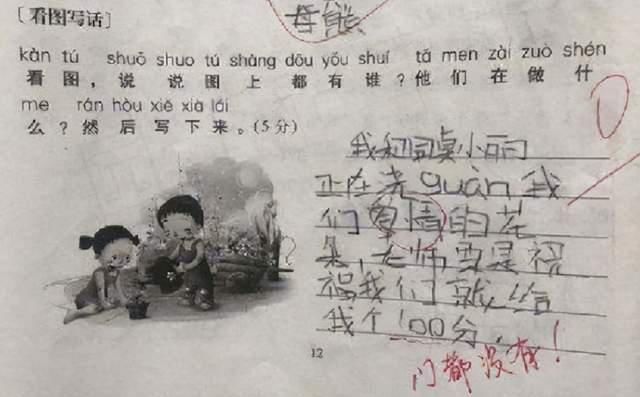 母熊
[看图写话]
kàn tú shuō shuo tú shàng dōu yǒu shuí tā men zài zuò shén
看图，说说图上都有谁？他们在做什
me rán hòu xiě xià lái
么？然后写下来。(5分)
我和同桌小丽
正在浇guàn我
们自情的花
朵，老师要是祝
福我们就给
我个100分.
12
门都没有！